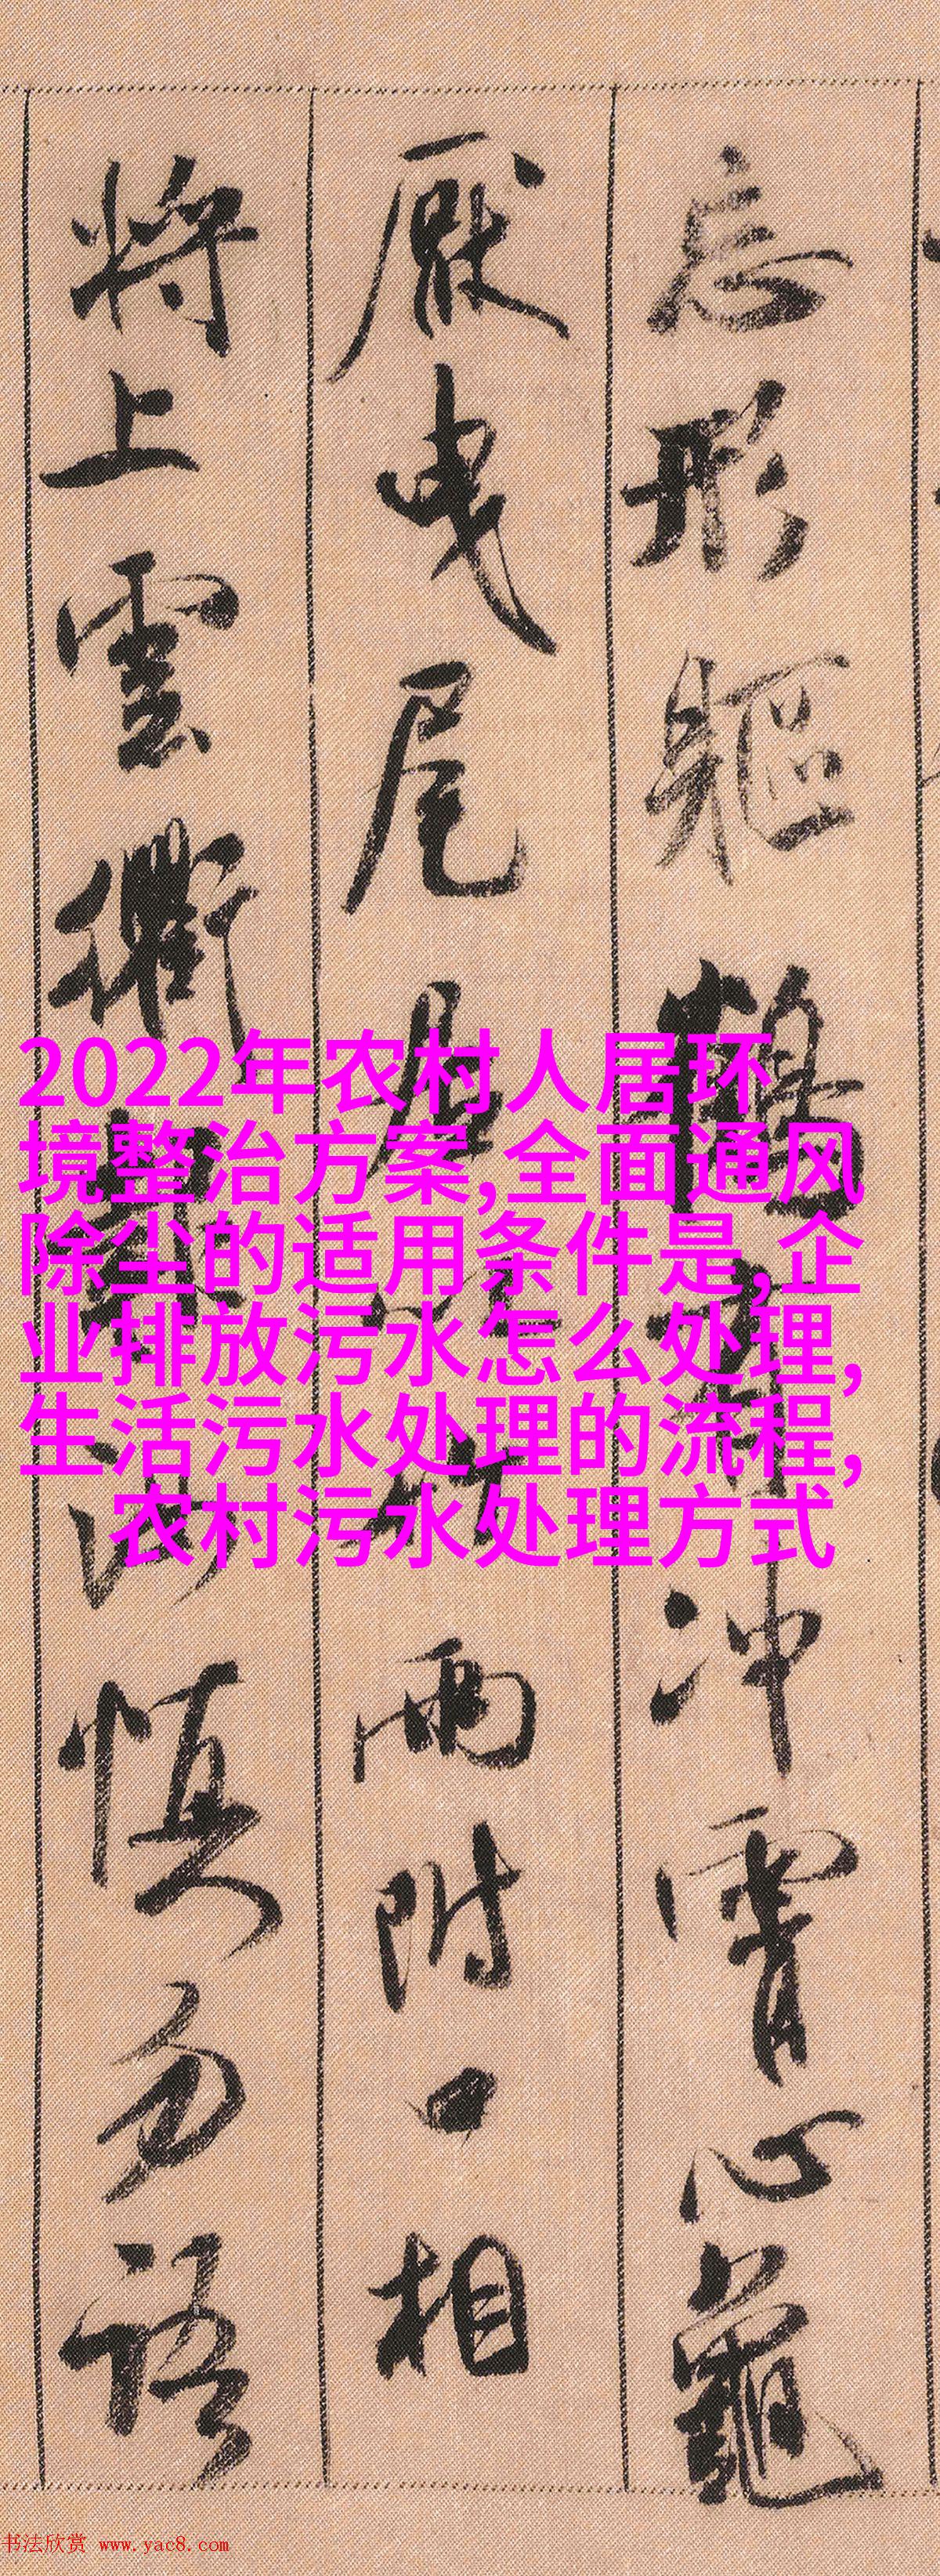 忘形軀鶴有冲霄心龜
厭曳尾居以竹兩附口相
將上雲衢報汝慎勿語
2022年农村人居环
境整治方案,全面通风
除尘的适用条件是,企
业排放污水怎么处理,
生活污水处理的流程,
农村污水处理方式
书法欣赏 www.yac8.com